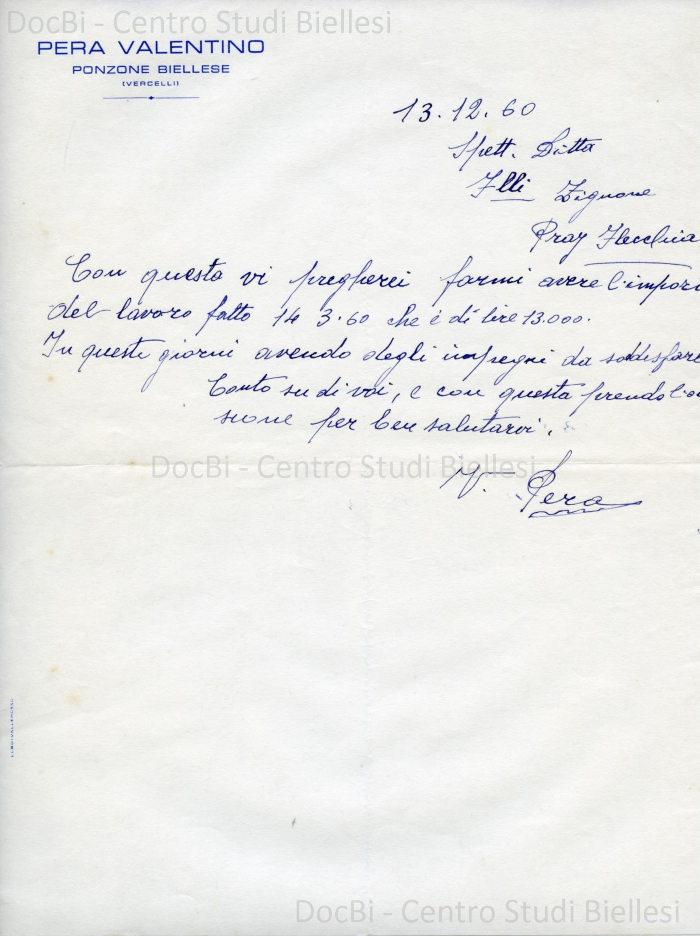 DocBi - Centro Studi Biellesi
PERA VALENTINO
PONZONE BIELLESE
(VERCELLI)
13.12.60
Spett. Ditta
Flli Zignone
Pray Flecchia
Con questa vi pregherei farmi avere l'impor
del lavoro fatto 14 3.60 che è di lire 13.000.
In questi giorni avendo degli impegni da soddisfare
Conto su di voi, e con questa prendo l'oc
sione per ben salutarvi.
DocBi - Centro Studi Biellesi
V. Pera
DocBi - Centro Studi Biellesi